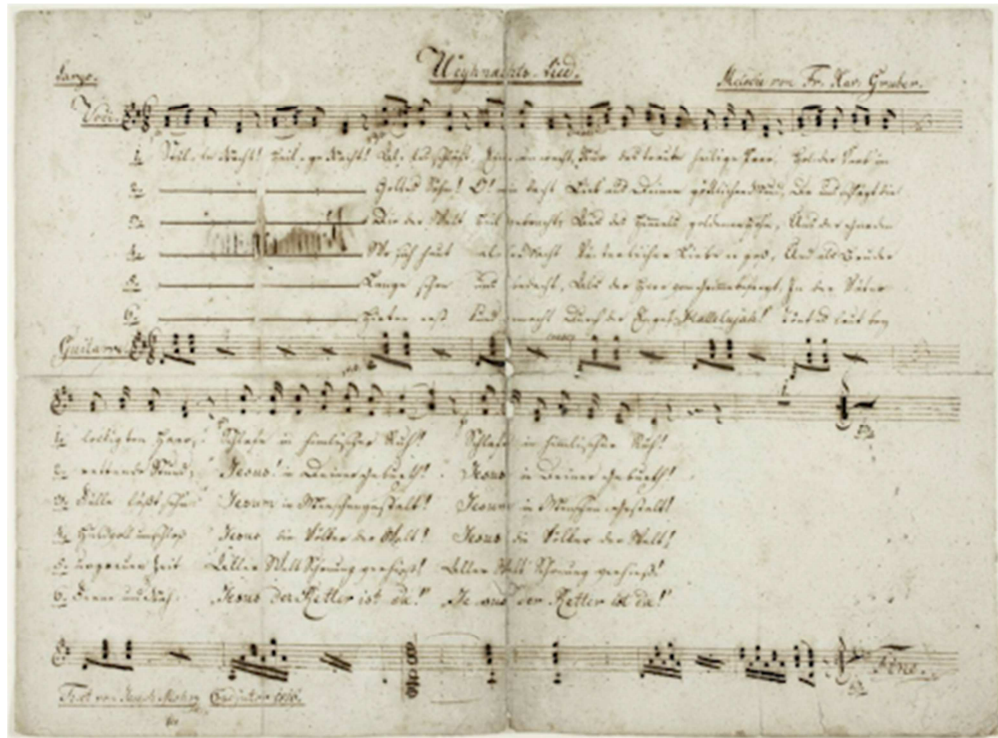 Weyhnachts-Lied.
Largo. Melodie von Fr. Xav. Gruber.
Voce.
1. Stille Nacht! Heilige Nacht! Alles schläft, Einsam wacht, Nur das traute heilige Paar. Holder Knab' im
2. Gottes Sohn! O! wie lacht Lieb' aus Deinem göttlichen Mund, Da uns schlägt die
3. Die der Welt Heil gebracht, Aus des Himmels goldenen Höhn, Uns der Gnaden
4. Wo sich heut alle Macht Väterlicher Liebe ergoß, Und als Bruder
5. Lange schon uns bedacht, Als der Herr vom Grimme befreyt, In der Väter
6. Hirten erst kund gemacht Durch der Engel Hallelujah! Tönt es laut bey
Guitarre.
1. lockigten Haar; Schlafe in himmlischer Ruh! Schlafe in himmlischer Ruh!
2. rettende Stund; Jesus! in Deiner Geburth! Jesus in Deiner Geburth!
3. Fülle läßt seh'n Jesum in Menschengestalt! Jesum in Menschengestalt!
4. Huldvoll umschloß Jesus die Völker der Welt! Jesus die Völker der Welt!
5. urgrauer Zeit Aller Welt Schonung verhieß! Aller Welt Schonung verhieß!
6. Ferne und Nah: Jesus der Retter ist da! Jesus der Retter ist da!
Fine.
Text von Joseph Mohr Coadjutor 1816.